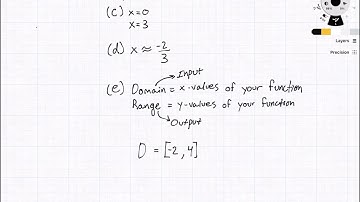 (c) x=0
x=3
(d) x≈ -2/3
Input
(e) Domain = x-values of your function
Range = y-values of your function
Output
D = [-2, 4]
Layers
Precision